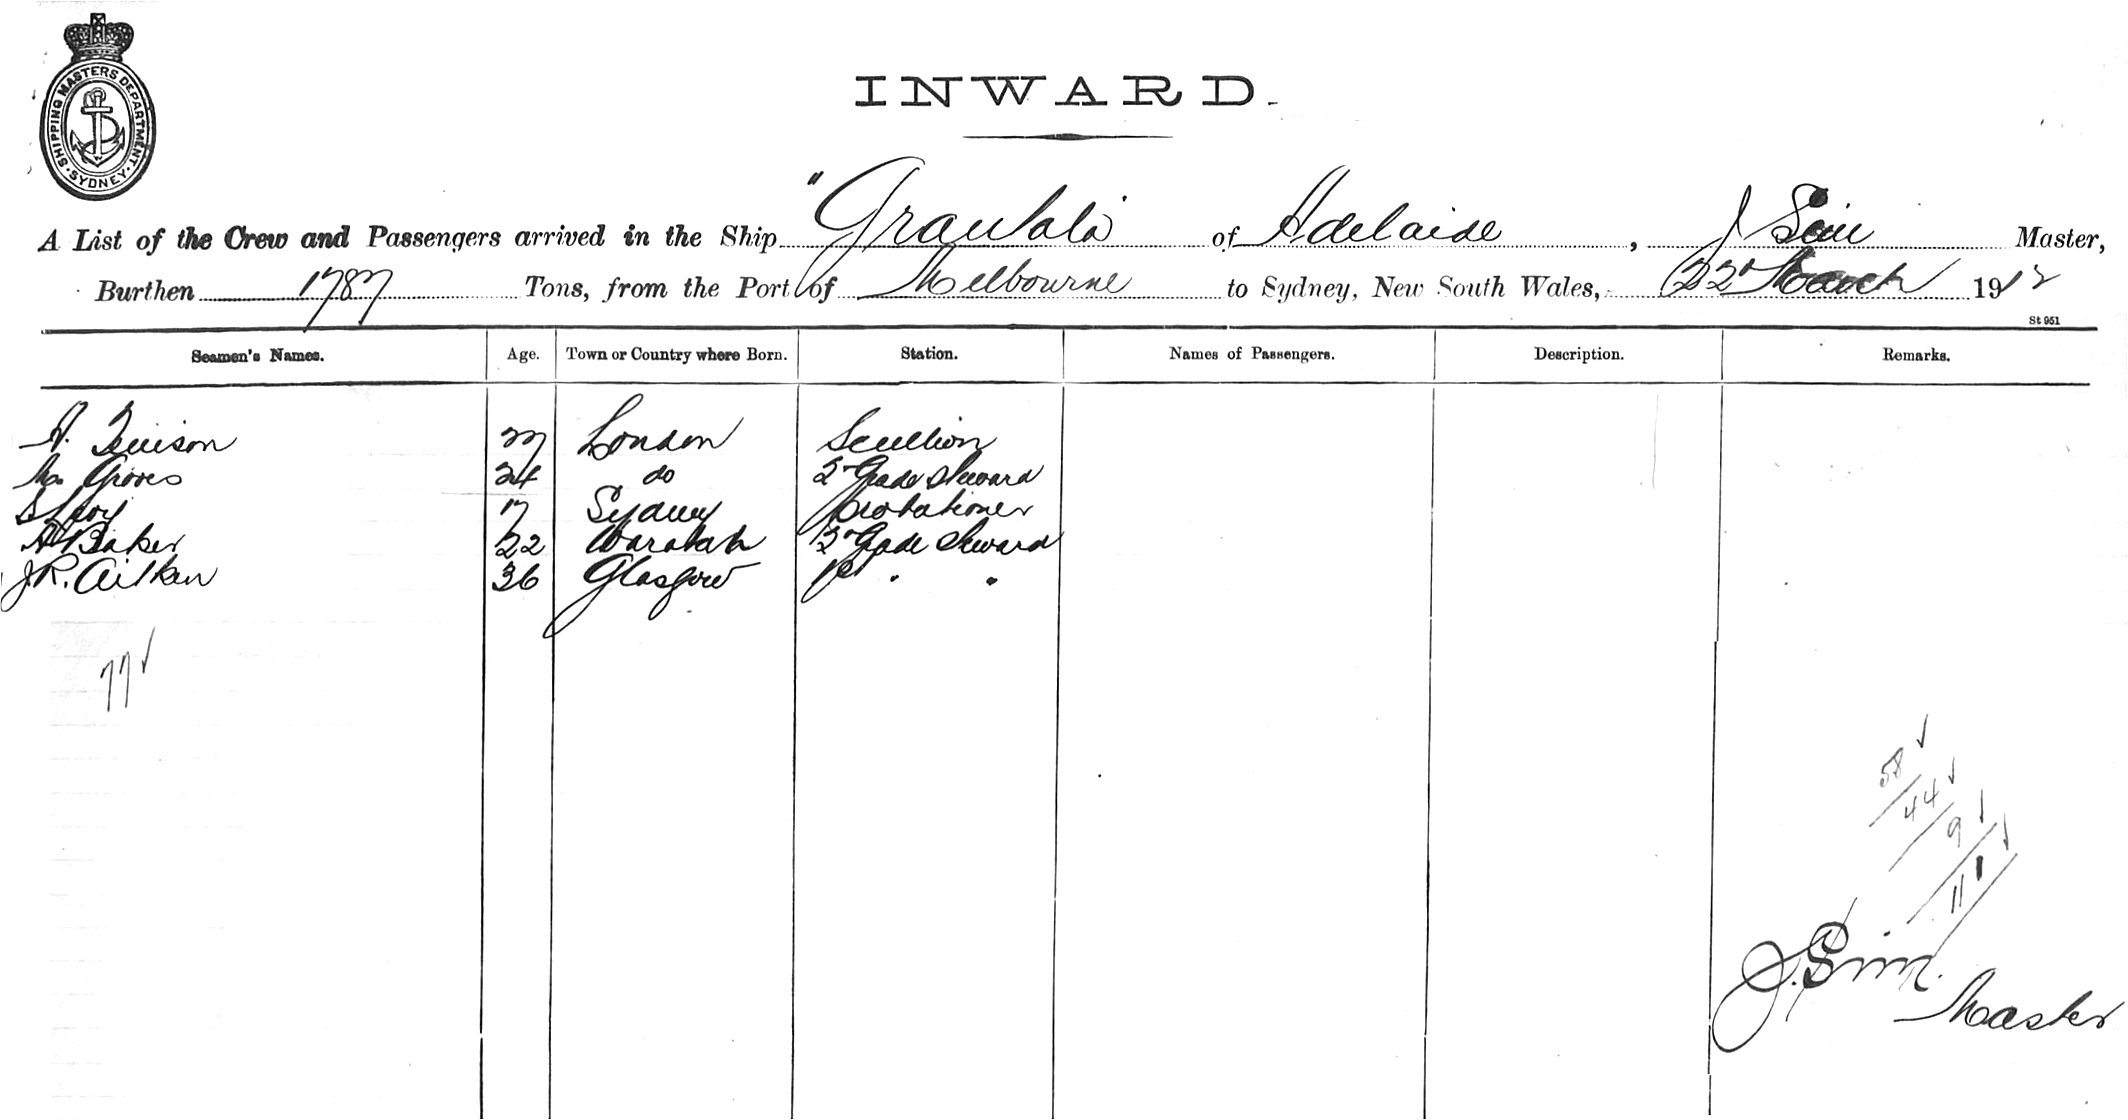 SHIPPING MASTERS DEPARTMENT · SYDNEY ·
INWARD.
A List of the Crew and Passengers arrived in the Ship "Grantala of Adelaide, J Sim Master,
Burthen 1787 Tons, from the Port of Melbourne to Sydney, New South Wales, 22nd March 1912
St 951
Seamen's Names. Age. Town or Country where Born. Station. Names of Passengers. Description. Remarks.
27 London Scullion
24 do 2nd Grade Steward
S Levy 17 Sydney probationer
A Baker 22 Waratah 2nd Grade Steward
J R. Aitken 36 Glasgow 1st " "
77
58
44
9
111
J. Sim.
Master